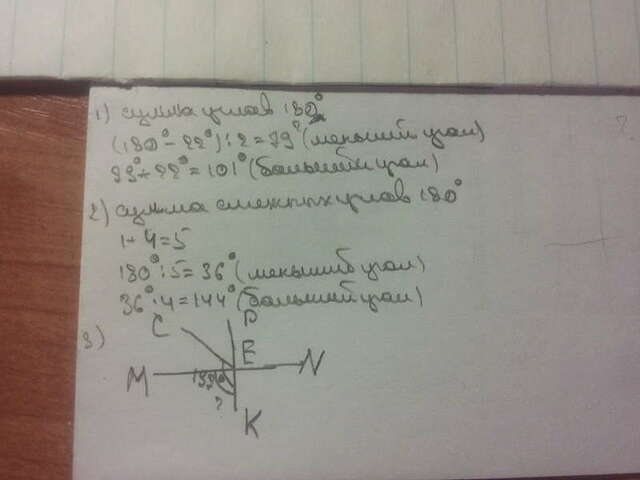 1) сумма углов 180°
(180° - 22°) : 2 = 79° (меньший угол)
79° + 22° = 101° (больший угол)
2) сумма смежных углов 180°
1 + 4 = 5
180° : 5 = 36° (меньший угол)
36° · 4 = 144° (больший угол)
3)
C P
E
M N
?
K